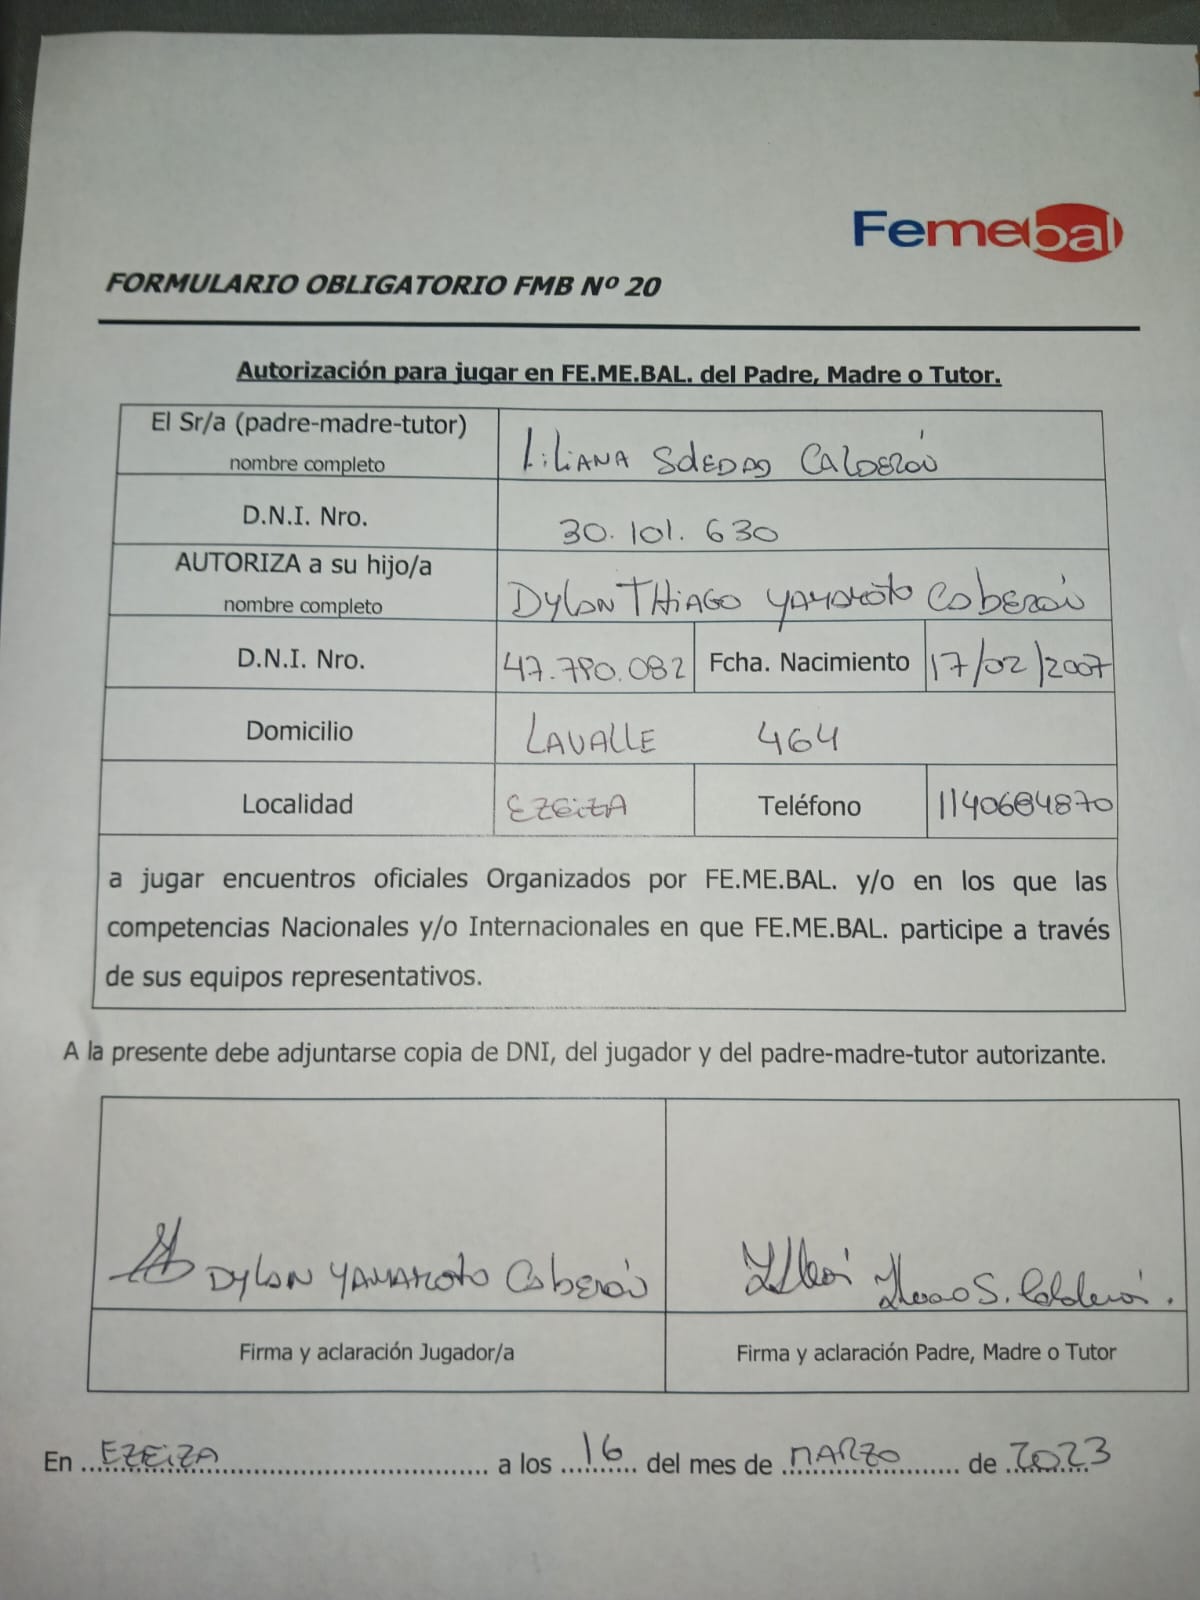 Femebal
FORMULARIO OBLIGATORIO FMB Nº 20
Autorización para jugar en FE.ME.BAL. del Padre, Madre o Tutor.
El Sr/a (padre-madre-tutor)
nombre completo
LiLiANA SOLEDAD CALDERÓN
D.N.I. Nro.
30.101.630
AUTORIZA a su hijo/a
nombre completo
DYLAN THiAGO YAMAMOTO CALDERÓN
D.N.I. Nro. 47.790.082 Fcha. Nacimiento 17/02/2007
Domicilio LAVALLE 464
Localidad EZEiZA Teléfono 1140684870
a jugar encuentros oficiales Organizados por FE.ME.BAL. y/o en los que las
competencias Nacionales y/o Internacionales en que FE.ME.BAL. participe a través
de sus equipos representativos.
A la presente debe adjuntarse copia de DNI, del jugador y del padre-madre-tutor autorizante.
DYLAN YAMAMOTO CALDERÓN
S. Calderón.
Firma y aclaración Jugador/a
Firma y aclaración Padre, Madre o Tutor
En EZEiZA a los 16 del mes de MARZO de 2023